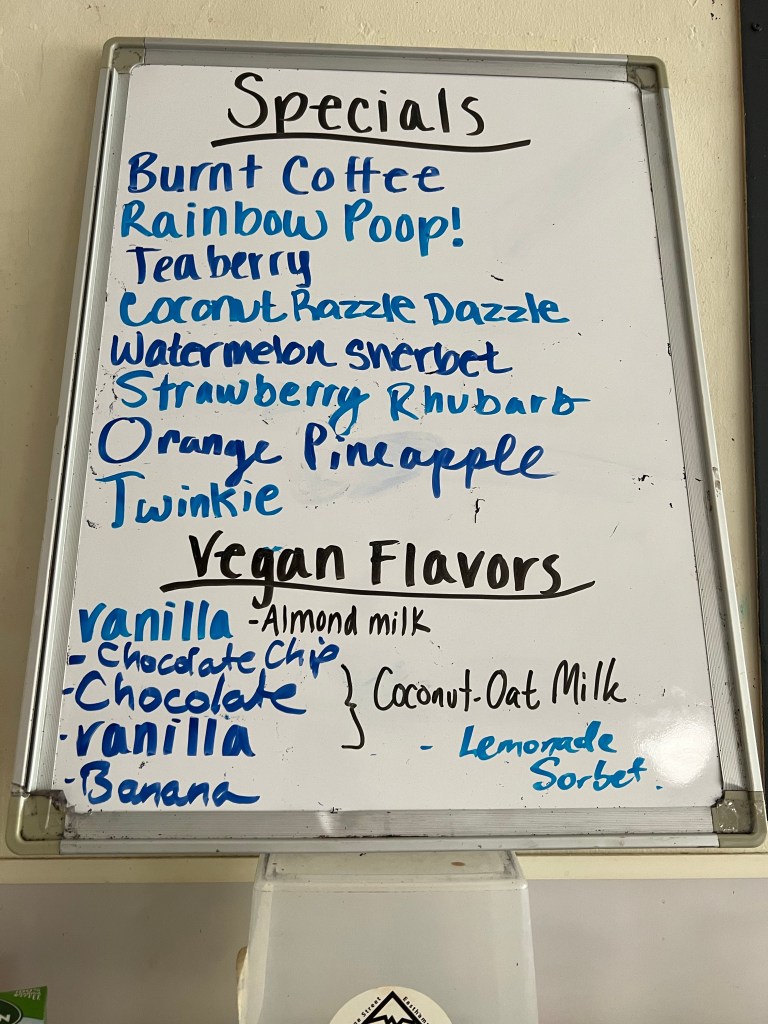 Specials
Burnt Coffee
Rainbow Poop!
Teaberry
Coconut Razzle Dazzle
Watermelon sherbet
Strawberry Rhubarb
Orange Pineapple
Twinkie
Vegan Flavors
vanilla - Almond milk
- Chocolate Chip
- Chocolate } Coconut-Oat Milk
- vanilla
- Banana
- Lemonade
Sorbet.